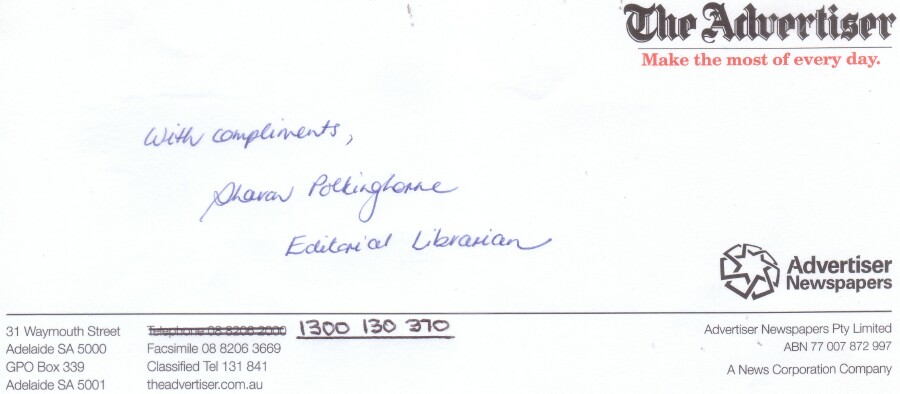 The Advertiser
Make the most of every day.
With compliments,
Sharon Polkinghorne
Editorial Librarian
Advertiser
Newspapers
31 Waymouth Street
Adelaide SA 5000
GPO Box 339
Adelaide SA 5001
Telephone 08 8206 2000 1300 130 370
Facsimile 08 8206 3669
Classified Tel 131 841
theadvertiser.com.au
Advertiser Newspapers Pty Limited
ABN 77 007 872 997
A News Corporation Company